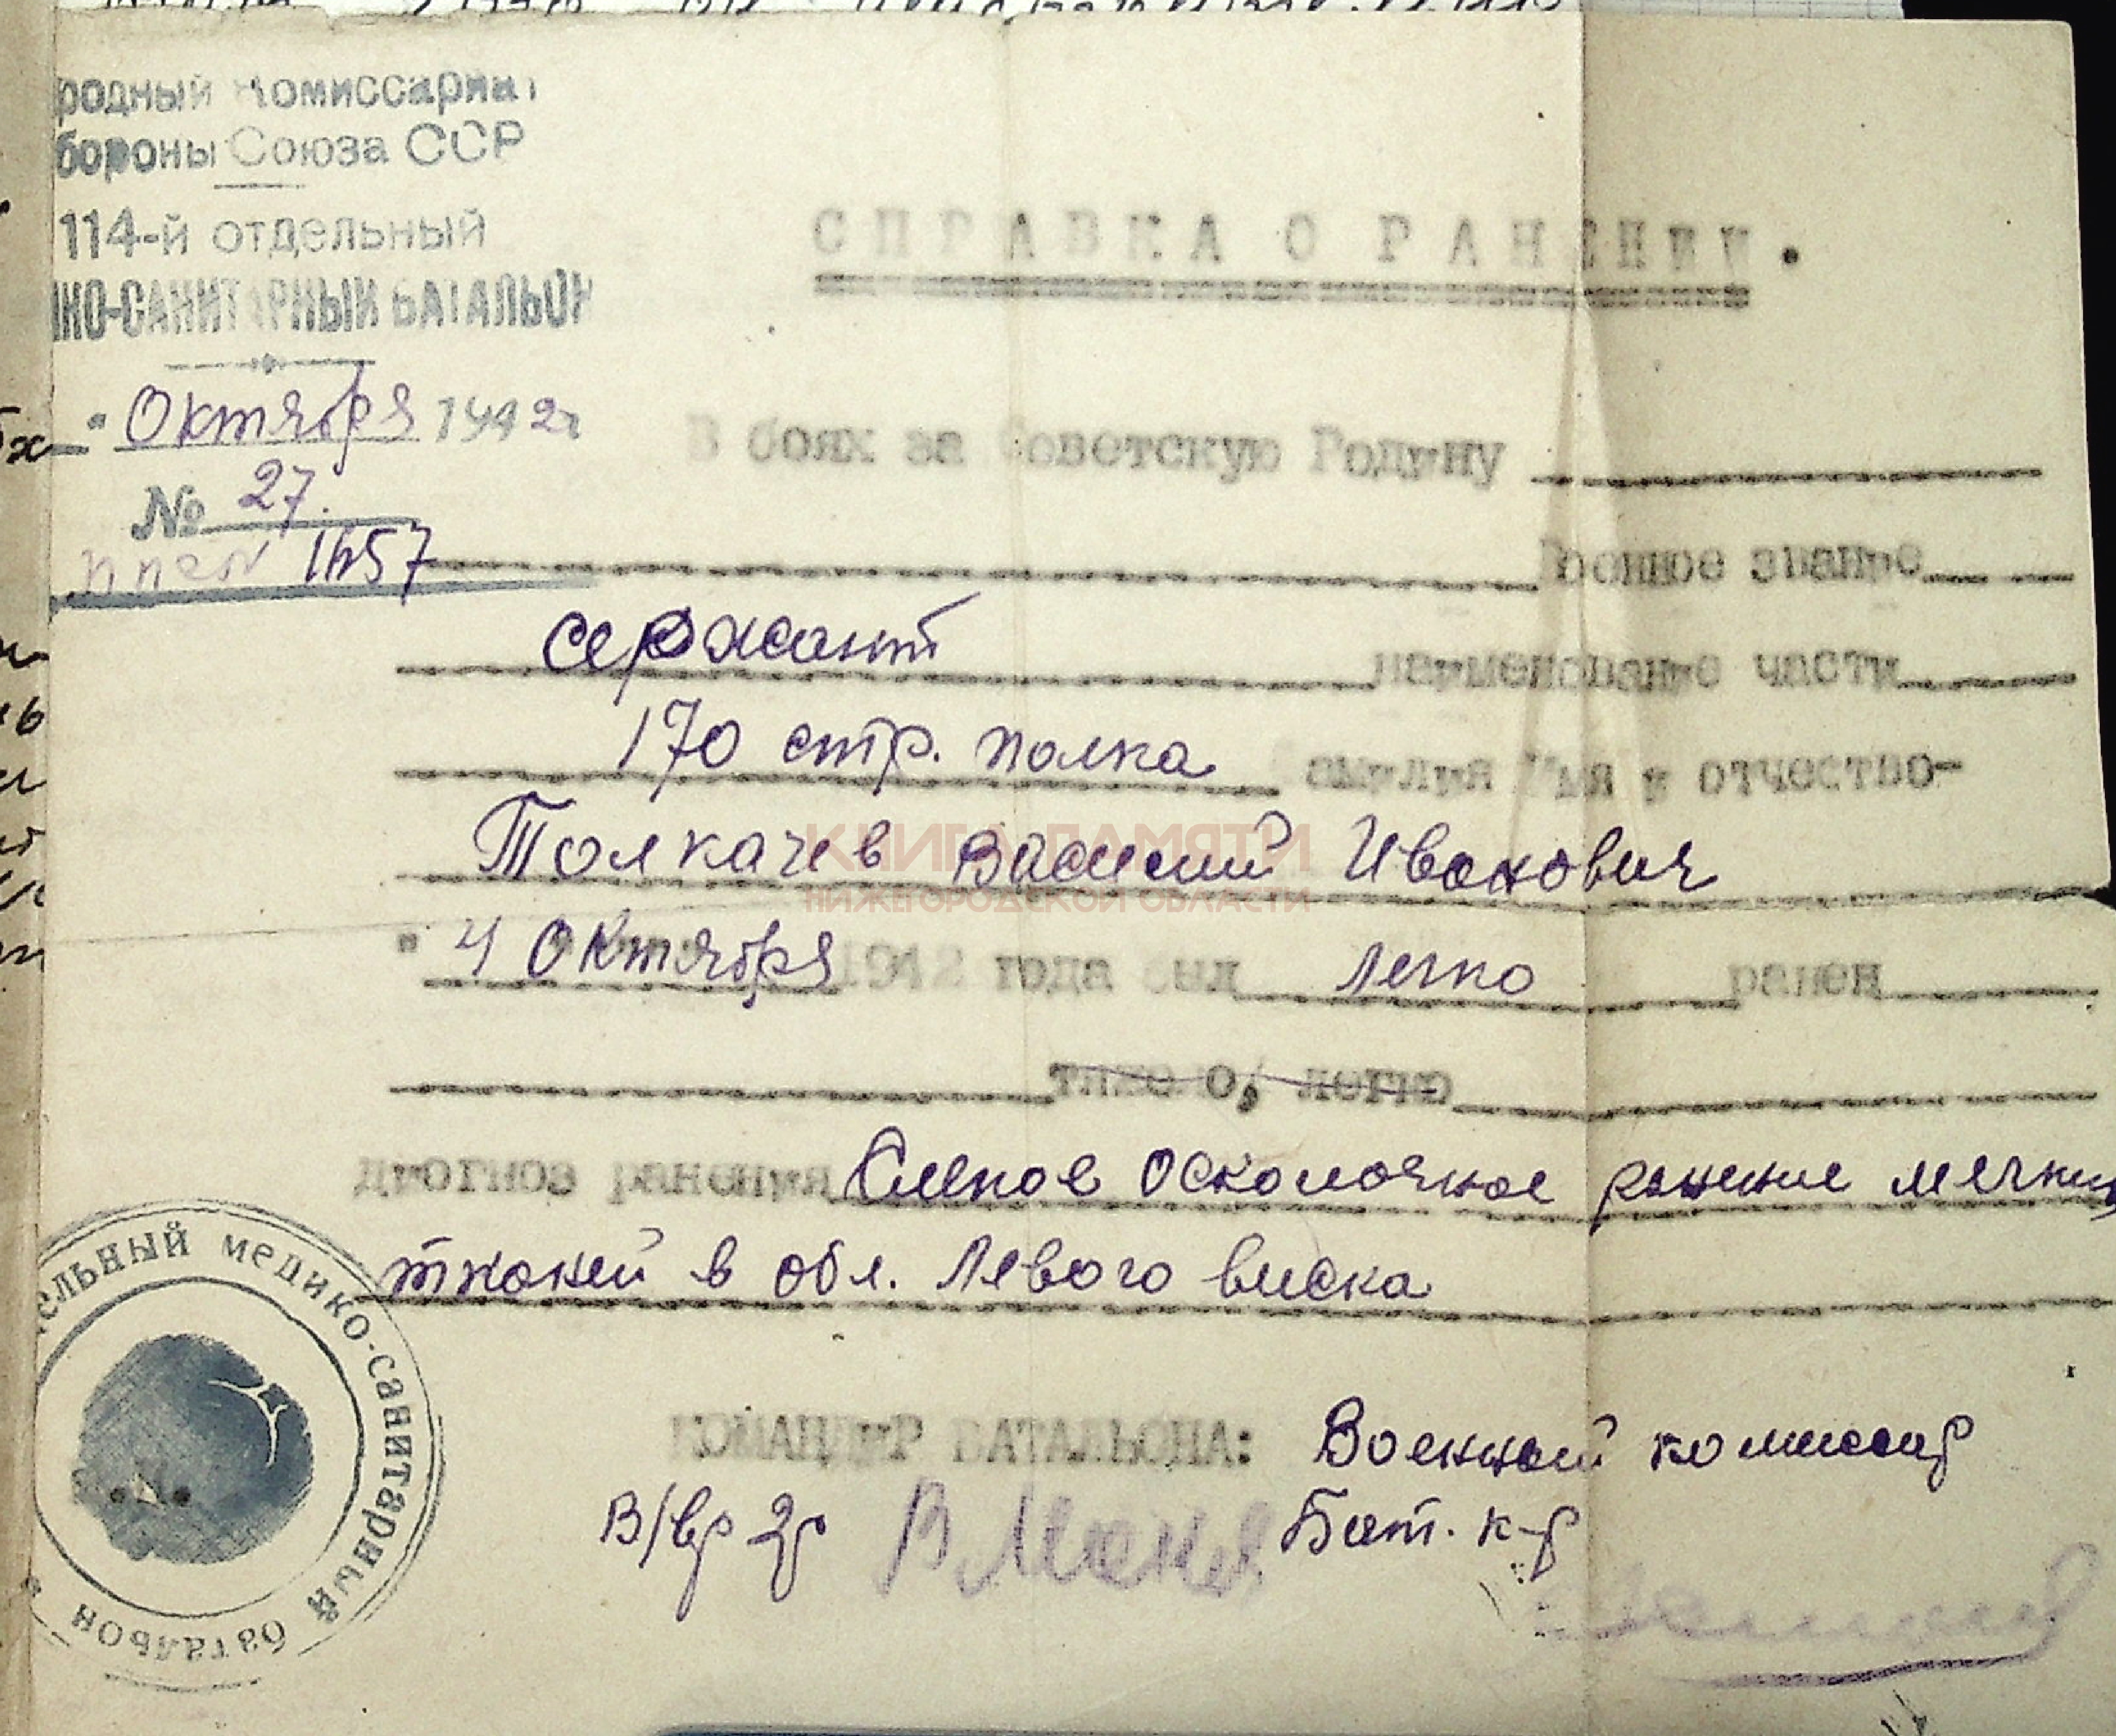 родный Комиссариат
бороны Союза ССР
114-й отдельный
ико-САНИТАРНЫЙ БАТАЛЬОН
" Октября 1942г
№ 27.
ппс № 1657
СПРАВКА О РАНЕНИИ.
В боях за Советскую Родину
Военное звание
сержант наименование части
170 стр. полка амилия Имя и отчество-
Толкачев Василий Иванович
КНИГА ПАМЯТИ
НИЖЕГОРОДСКОЙ ОБЛАСТИ
" 4 Октября 1942 года был легко ранен
тяжело, легко
прогноз ранения Слепое осколочное ранение мягких
тканей в обл. Левого виска
КОМАНДИР БАТАЛЬОНА: Военный комиссар
В/вр 2р Бат. к-р
ельный медико-санитарный батальон